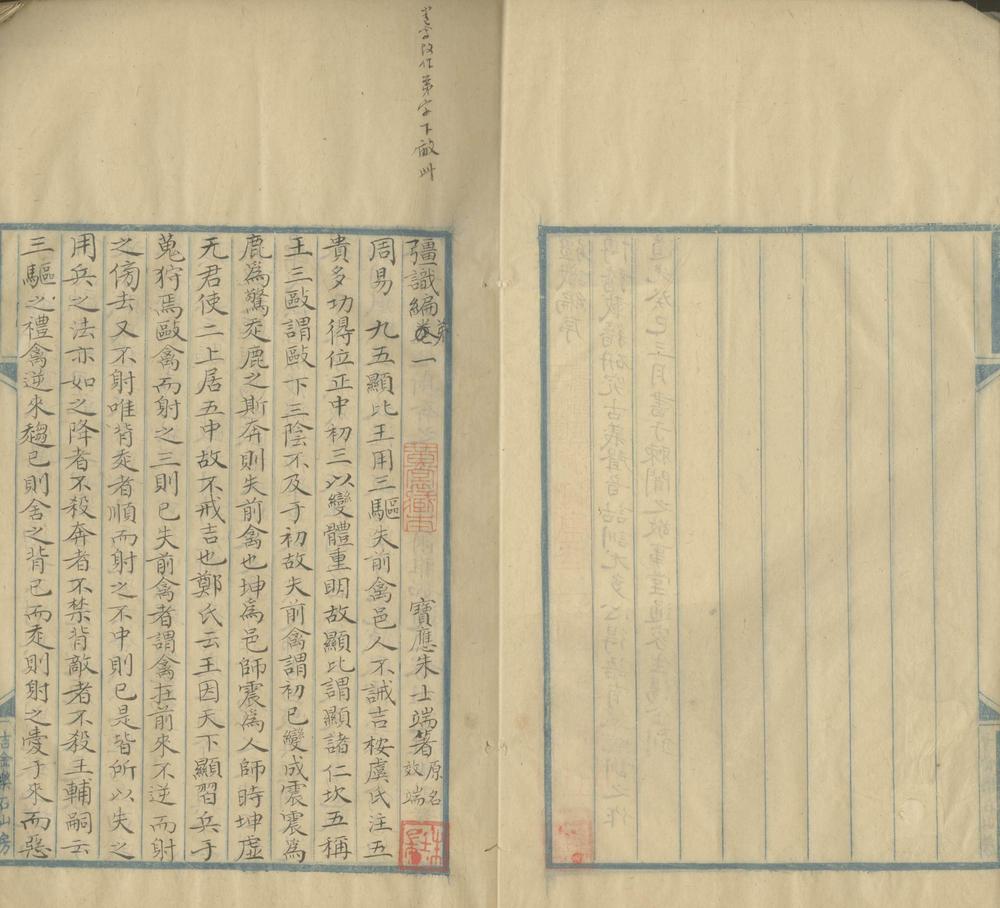 卷字改作第字下敵此
彊識編卷第一
寶應朱士端著原名效端
周易　九五顯比王用三驅失前禽邑人不誡吉桉虞氏注五
貴多功得位正中初三以變體重明故顯比謂顯諸仁坎五稱
王三敺謂敺下三陰不及于初故失前禽謂初已變成震震為
鹿為驚走鹿之斯奔則失前禽也坤為邑師震為人師時坤虛
无君使二上居五中故不戒吉也鄭氏云王因天下顯習兵于
蒐狩焉敺禽而射之三則已失前禽者謂禽在前來不逆而射
之傍去又不射唯背走者順而射之不中則已是皆所以失之
用兵之法亦如之降者不殺奔者不禁背敵者不殺王輔嗣云
三驅之禮禽逆來趨己則舍之背己而走則射之愛于來而惡
吉金樂石山房